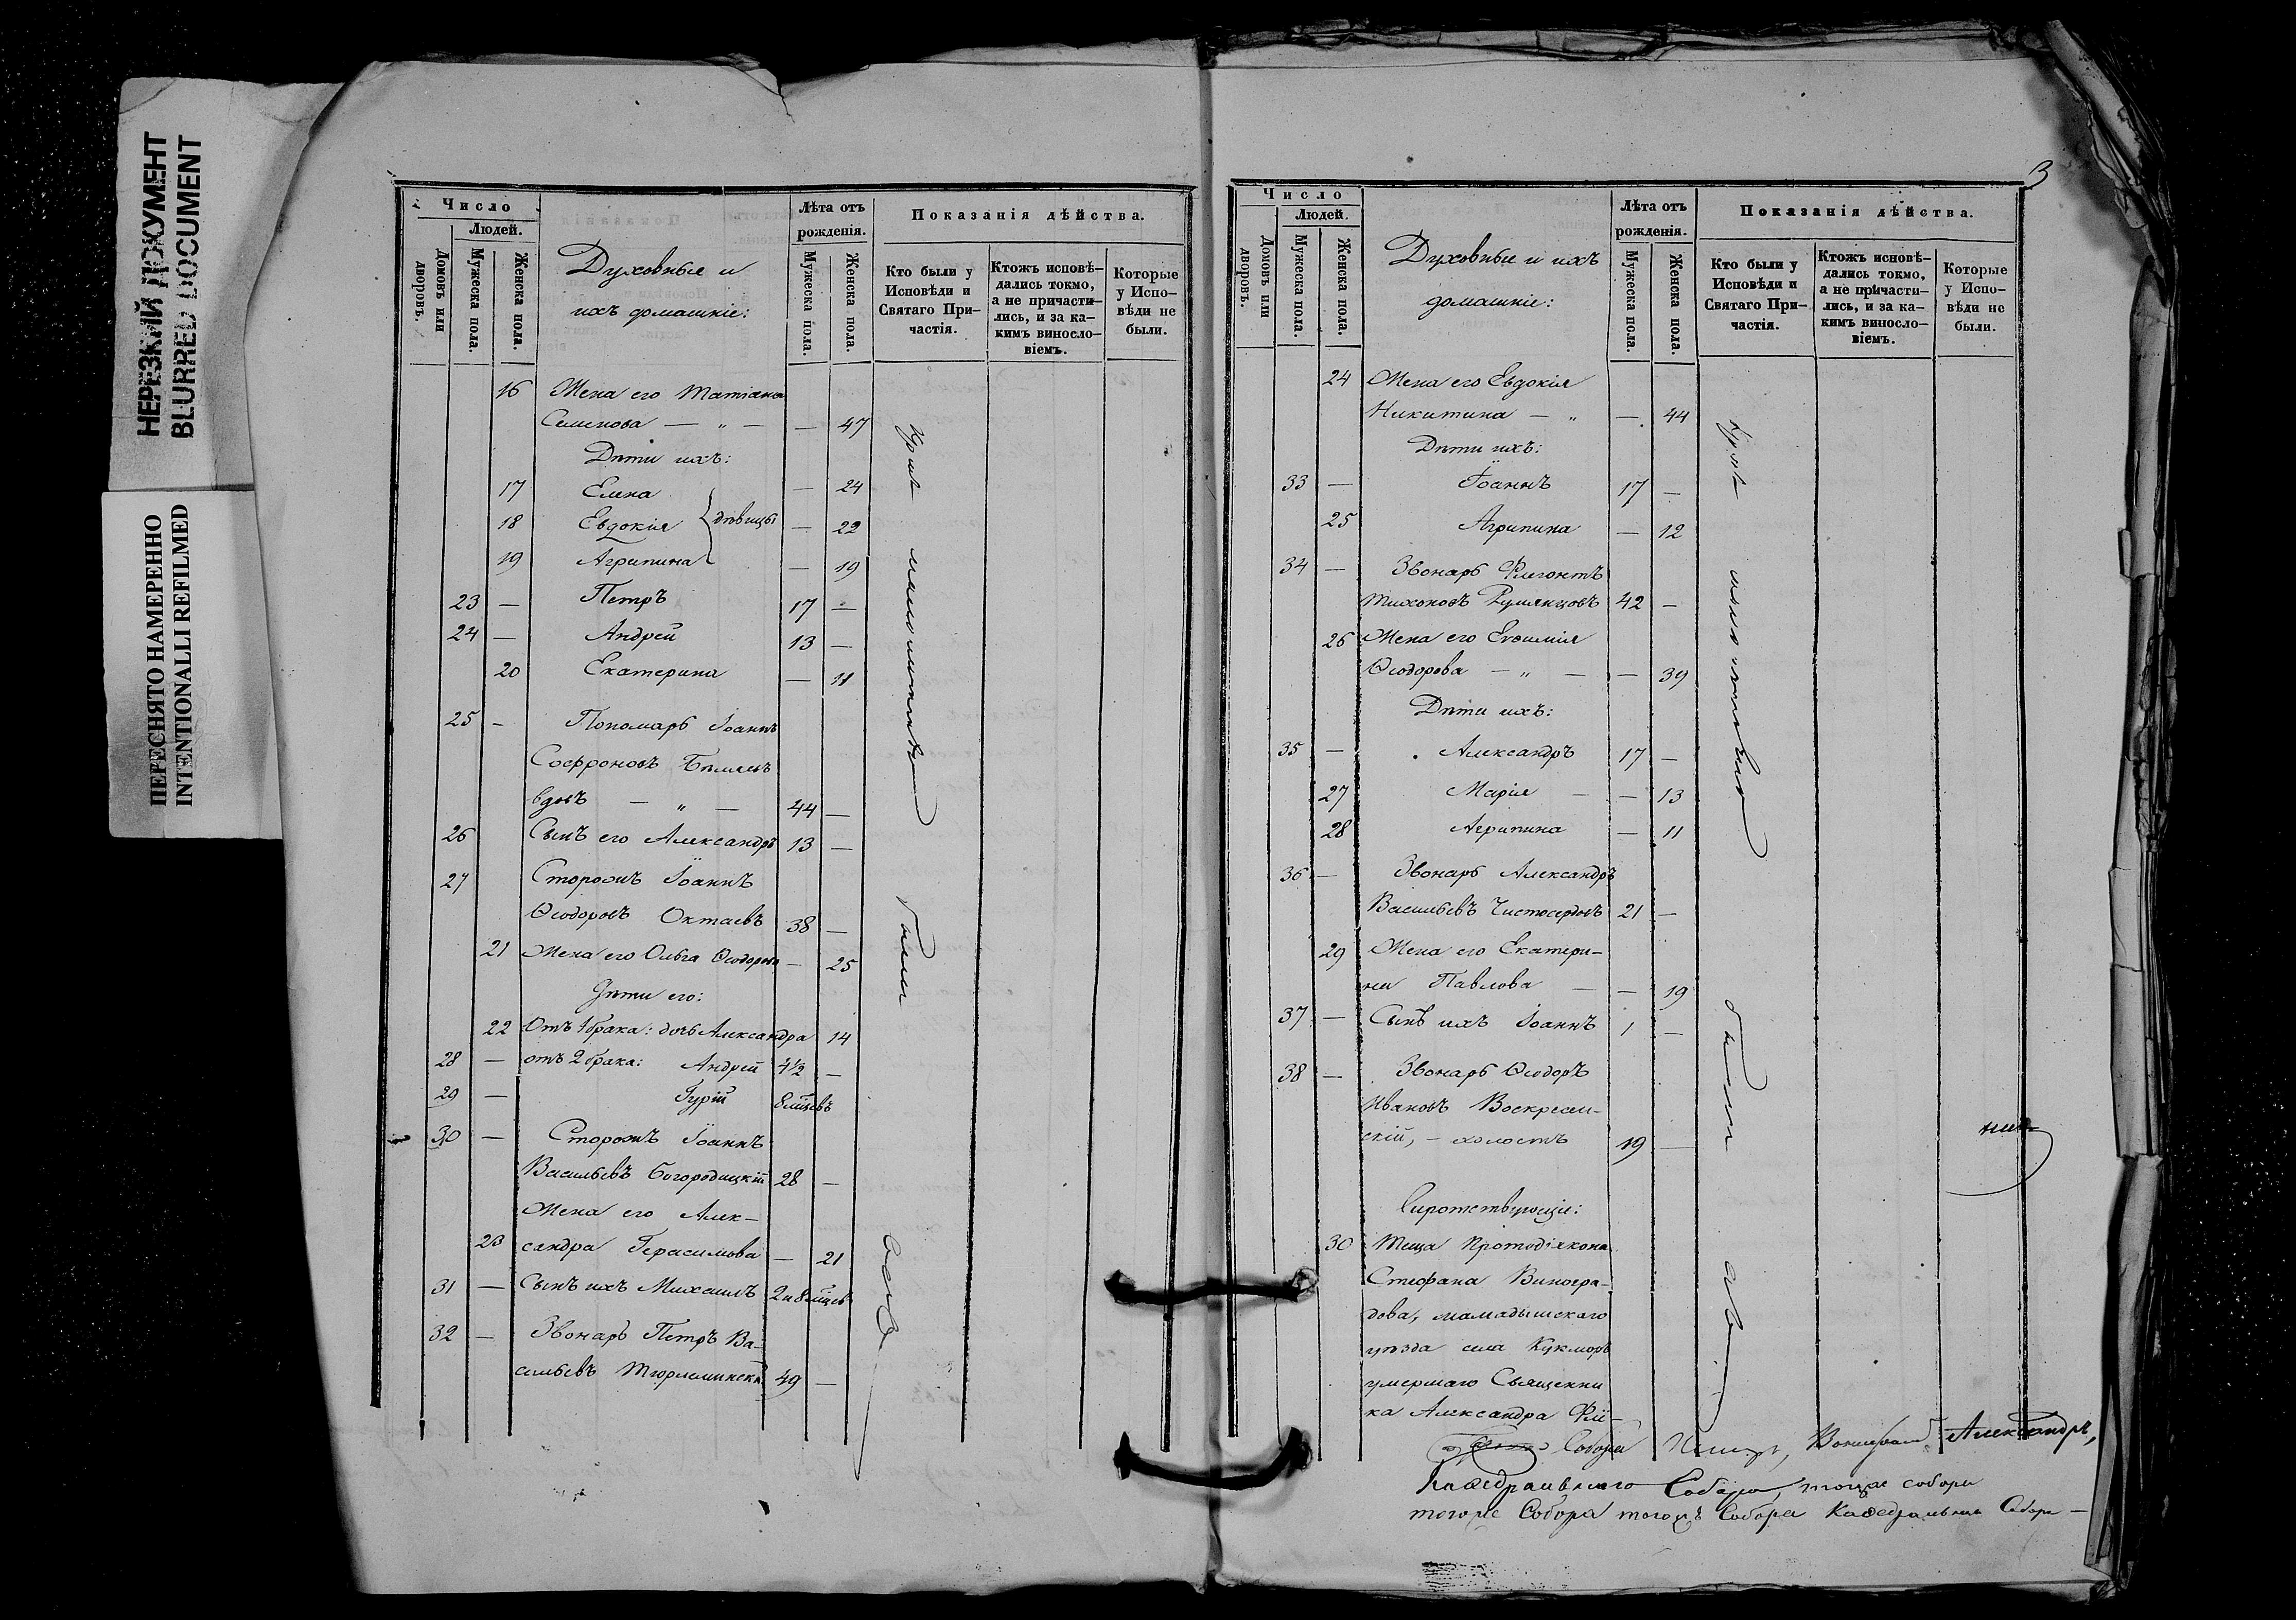 НЕРЕЗКИЙ ДОКУМЕНТ
BLURRED DOCUMENT
ПЕРЕСНЯТО НАМЕРЕННО
INTENTIONALLI REFILMED
Число
Людей.
Домовъ или дворовъ.
Мужеска пола.
Женска пола.
Духовные и
ихъ домашніе:
Лѣта отъ
рожденія.
Мужеска пола.
Женска пола.
Показанія дѣйства.
Кто были у
Исповѣди и
Святаго При-
частія.
Ктожъ исповѣ-
дались токмо,
а не причасти-
лись, и за ка-
кимъ винosло-
віемъ.
Которые
у Испо-
вѣди не
были.
16 Жена его Татіана
Семенова — „ — — 47
Дѣти ихъ:
17 Елена — 24
18 Евдокія } дѣвицы — 22
19 Агрипина — 19
23 — Петръ 17 —
24 — Андрей 13 —
20 Екатерина — 11
25 — Пономарь Іоаннъ
Софроновъ
вдовъ — „ — 44 —
26 Сынъ его Александръ 13 —
27 Сторожъ Іоаннъ
Ѳеодоровъ Октаевъ 38 —
21 Жена его Ольга Ѳеодорова — 25
Дѣти его:
22 Отъ 1 брака: дочь Александра 14
28 — отъ 2 брака: Андрей 4½ —
29 — Гурій 8 мцевъ
30 — Сторожъ Іоаннъ
Васильевъ Богородицкій 28 —
Жена его Алек-
23 сандра Герасимова — 21
31 — Сынъ ихъ Михаилъ 2 и 8 мцев
32 — Звонарь Петръ Ва-
сильевъ 49 —
были
3
Число
Людей.
Домовъ или дворовъ.
Мужеска пола.
Женска пола.
Духовные и ихъ
домашніе:
Лѣта отъ
рожденія.
Мужеска пола.
Женска пола.
Показанія дѣйства.
Кто были у
Исповѣди и
Святаго При-
частія.
Ктожъ исповѣ-
дались токмо,
а не причасти-
лись, и за ка-
кимъ винosло-
віемъ.
Которые
у Испо-
вѣди не
были.
24 Жена его Евдокія
Никитина — „ — 44
Дѣти ихъ:
33 — Іоаннъ 17 —
25 Агрипина — 12
34 — Звонарь Флегонтъ
Тихоновъ Румянцовъ 42 —
26 Жена его Евѳимія
Ѳеодорова — „ — — 39
Дѣти ихъ:
35 — Александръ 17 —
27 Марія — — 13
28 Агрипина — 11
36 — Звонарь Александръ
Васильевъ Чистосердовъ 21 —
29 Жена его Екатери-
на Павлова — — 19
37 — Сынъ ихъ Іоаннъ 1 —
38 — Звонарь Ѳеодоръ
Ивановъ Воскресен-
скій, — холостъ 19 —
Сиротствующіе:
30 Теща Протодіакона
Стефана Виногра-
дова, мамадышскаго
уѣзда села Кукморъ
умершаго Священни
ка Александра
были
Собора Александръ,
Каѳедральнаго Собора, тогоже собора
тогоже Собора тогожъ Собора Каѳедральнаго Собора —